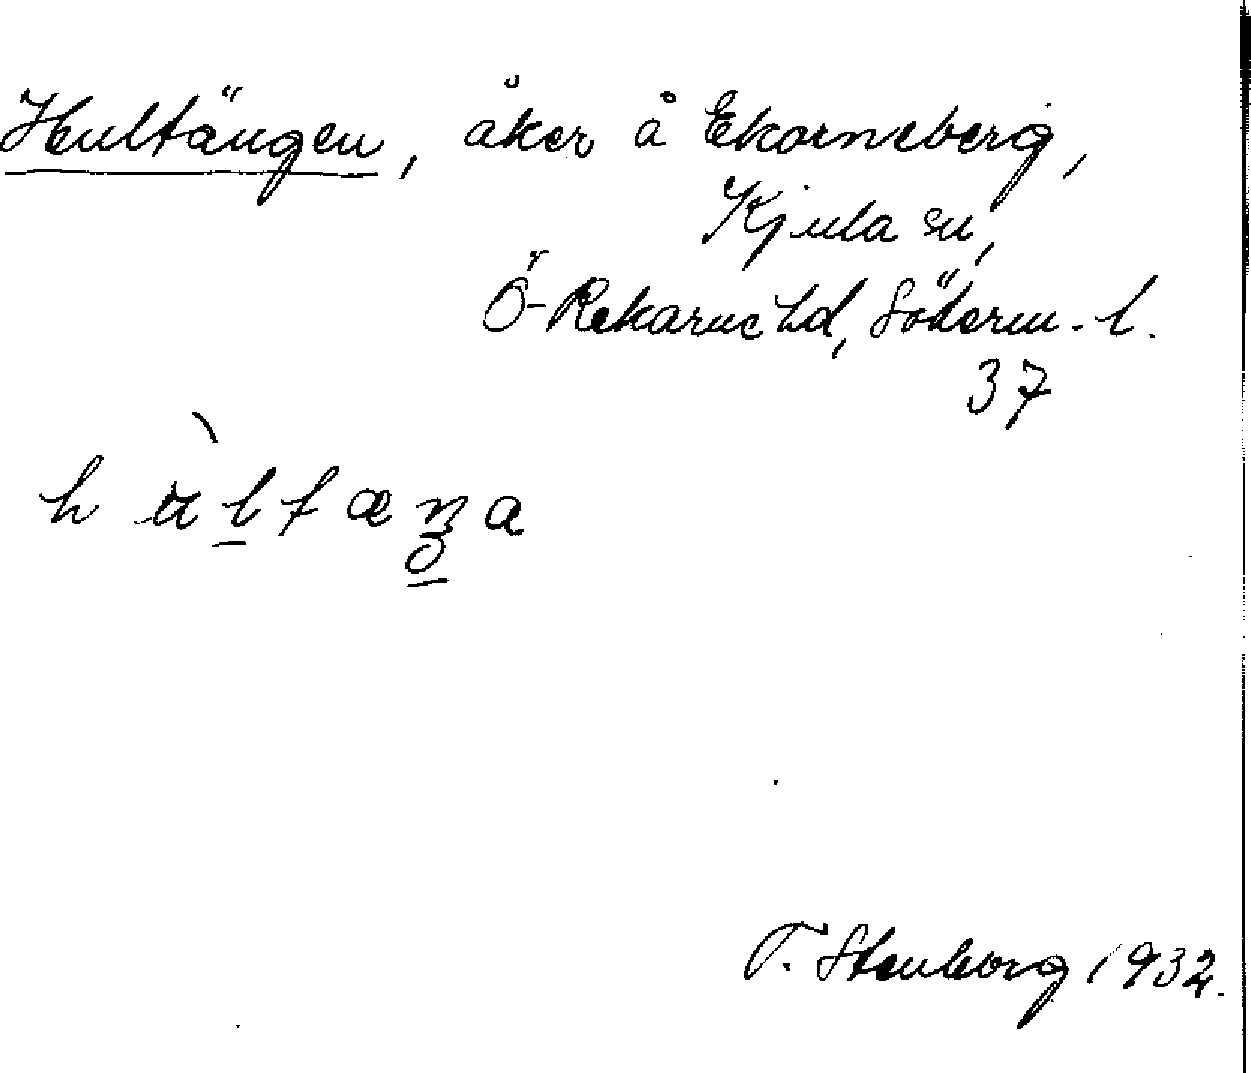 Hultängen, åker å Ekorneberg,
Kjula sn,
Ö-Rekarne hd, Söderm. l.
37
T. Stenborg 1932.